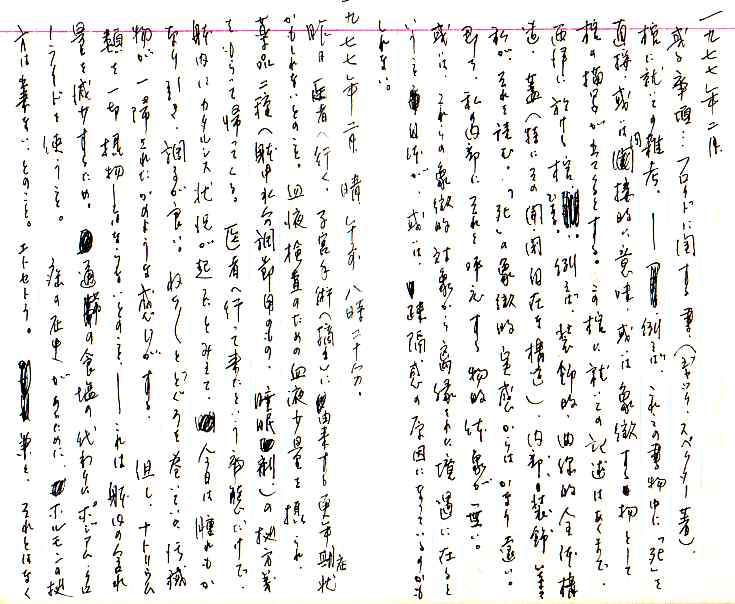 一九七七年二月
或る車廂… フロイドに関する書(ジャック・スペクター著)。
棺に就いての雑考。——例えば、これらの書物中に「死」を
直接、或いは間接的に意味、或いは象徴する物として
棺の描写があったとする。この棺に就いての記述はあくまで、
西洋に於ける棺である。例えば、装飾的、曲線的全体構
造、蓋(特にその開閉自在な構造)、内部の装飾等
私が、それを読む。「死」の象徴的実感からはかなり遠い。
即ち、私の内部にそれを呼応する物的対象が無い。
或いは、これらの象徴的対象から離縁された境遇に在ると
いうこと自体が、或いは、疎隔感の原因になっているのかも
しれない。
一九七七年二月 晴 午前八時二十分。
昨日医者へ行く。子宮手術(摘出)に由来する更年期症状
かもしれないとのこと。血液検査のための血液少量を採られ、
薬品二種(体中水分調節用のもの、睡眠剤)の処方箋
をもらって帰ってくる。医者へ行って来たという事態だけで、
体内にカタルシス状況が起ったとみえて、今日は腫れもか
なり引き、調子が良い。ねちねちととぐろを巻いていた汚穢
物が一掃されたかのような感じがする。但し、ナトリウム
類を一切摂取してはならないとのこと。——これは体内の水
量を減少するため。通常の食塩の代わりに、ポジアム・クロ
ーライドを使うこと。癌の歴史があるために、ホルモンの投
方は出来ないとのこと。エトセトラ。 それとはなく